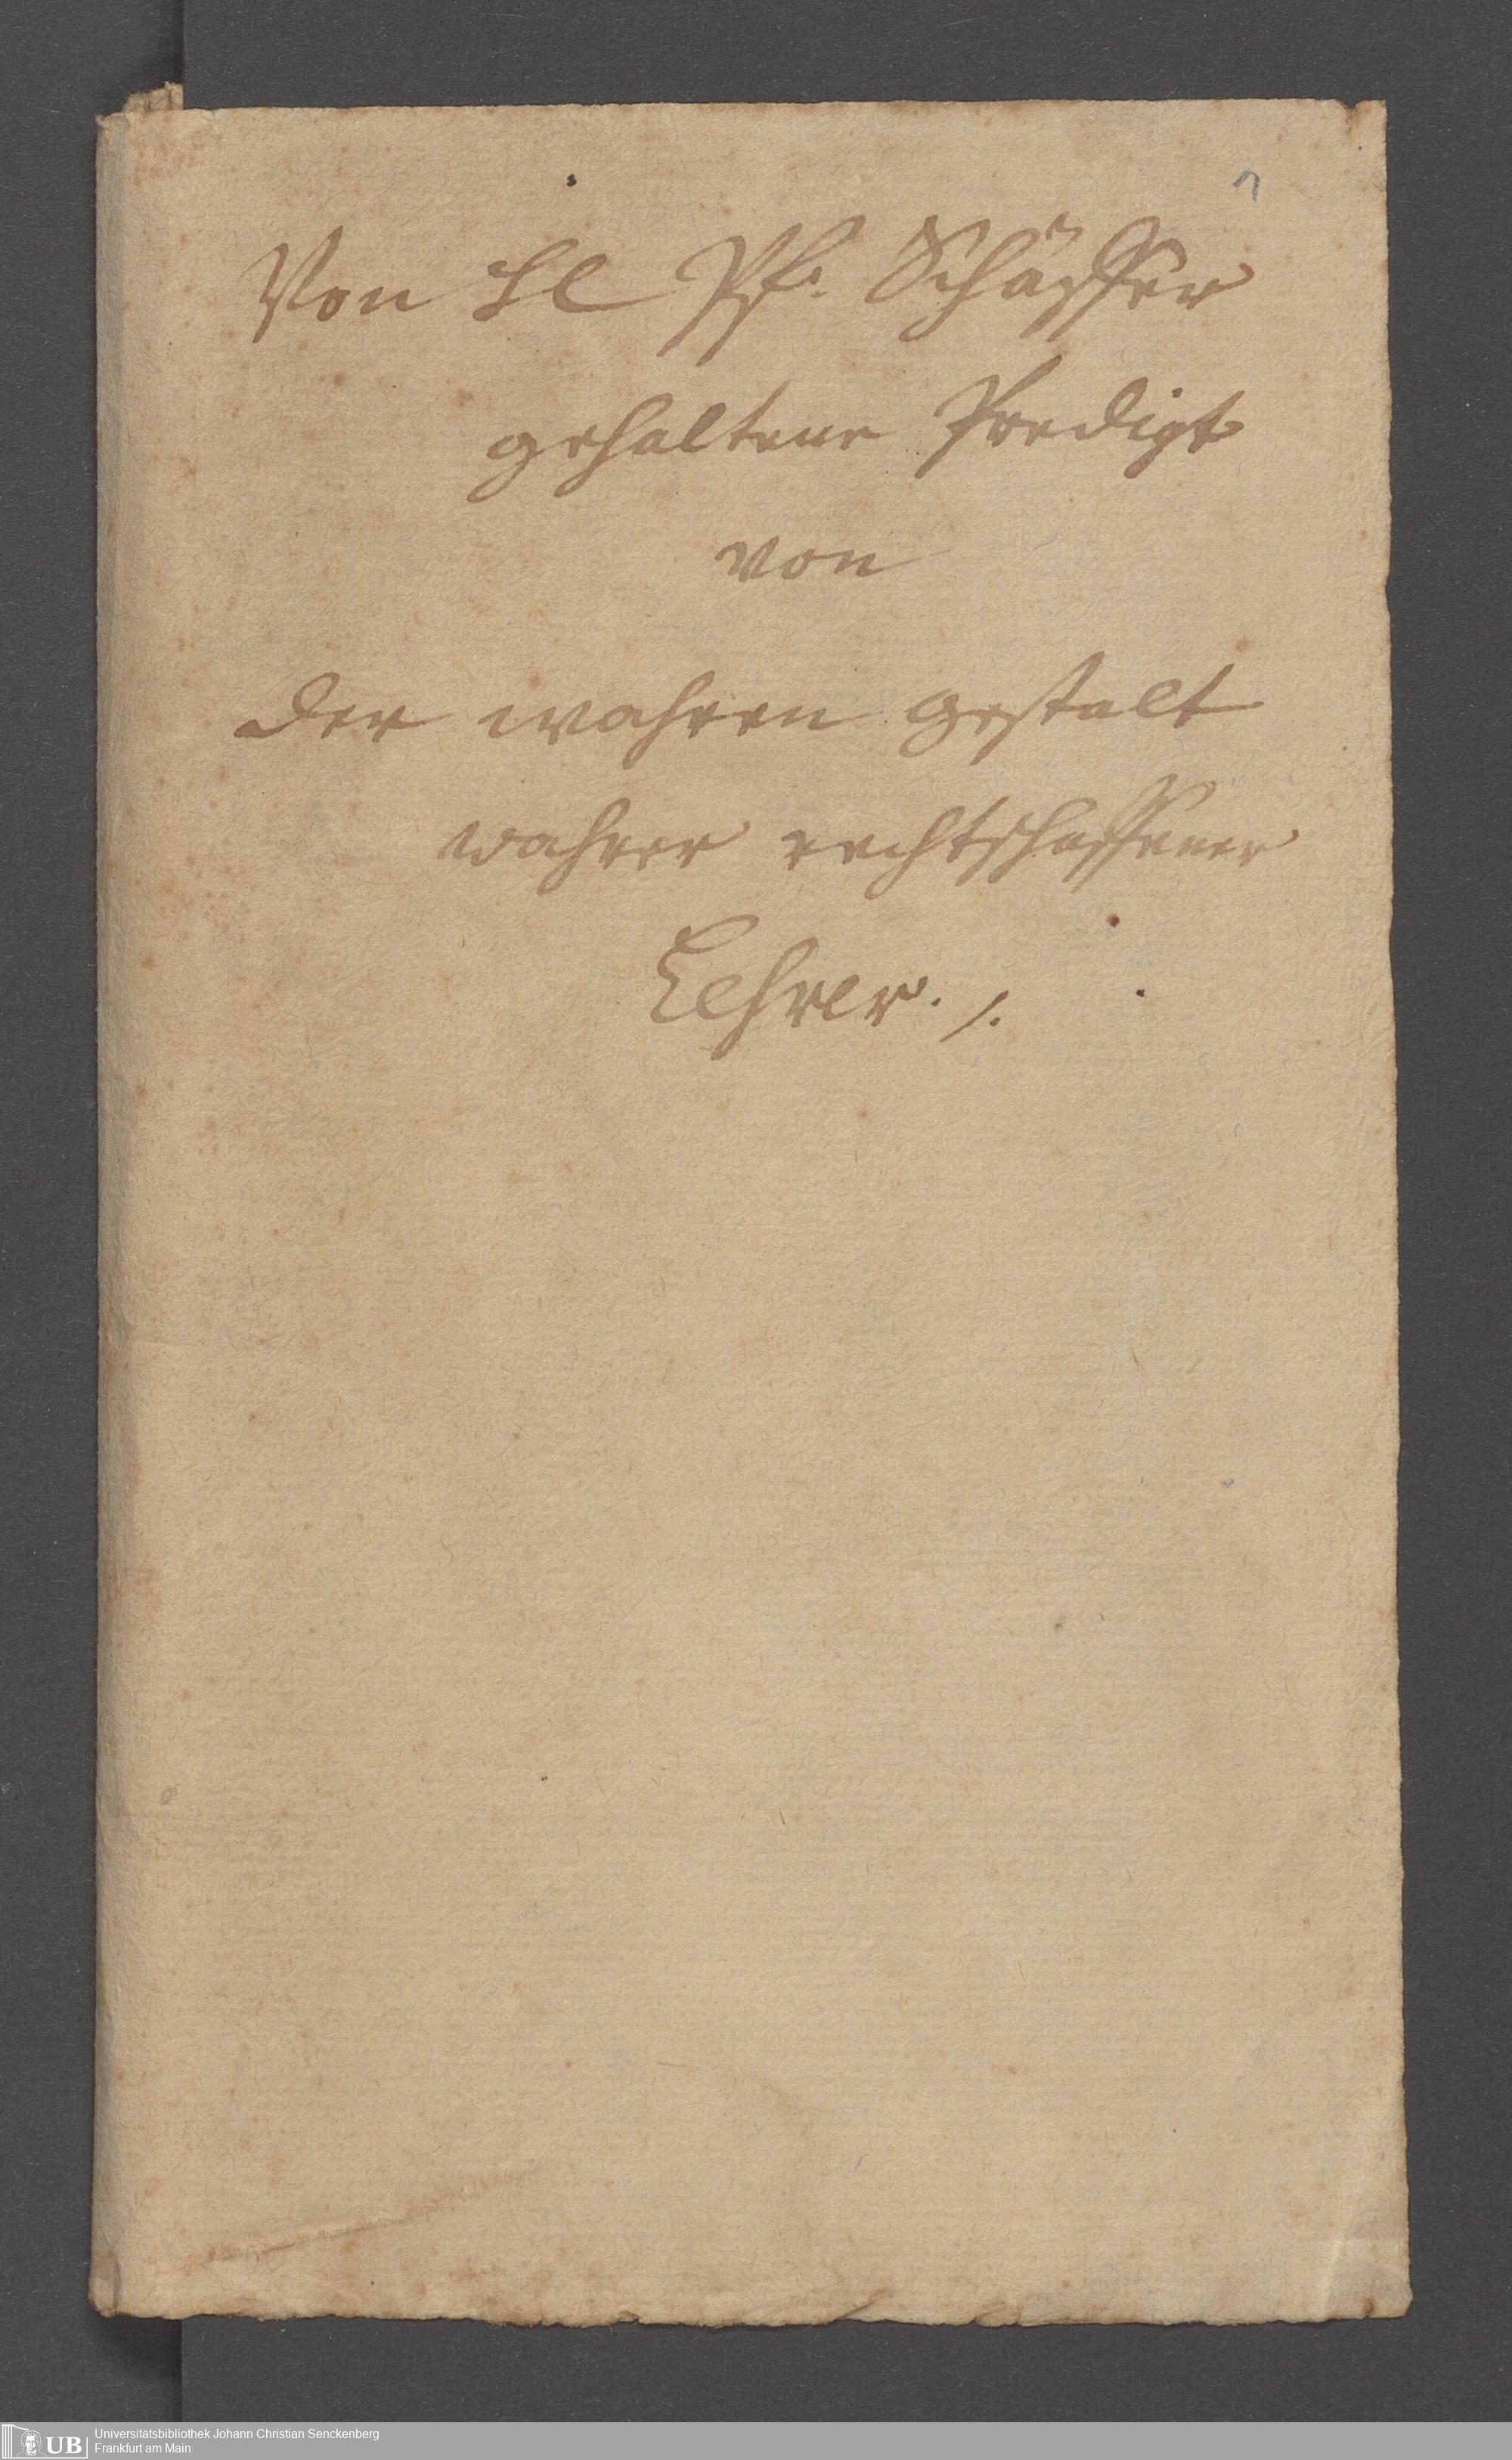 Von Hl Pf. Schäffer
gehaltene Predigt
von
der wahren gestalt
wahrer rechtschaffener
Lehrer. /.
UB
Universitätsbibliothek Johann Christian Senckenberg
Frankfurt am Main